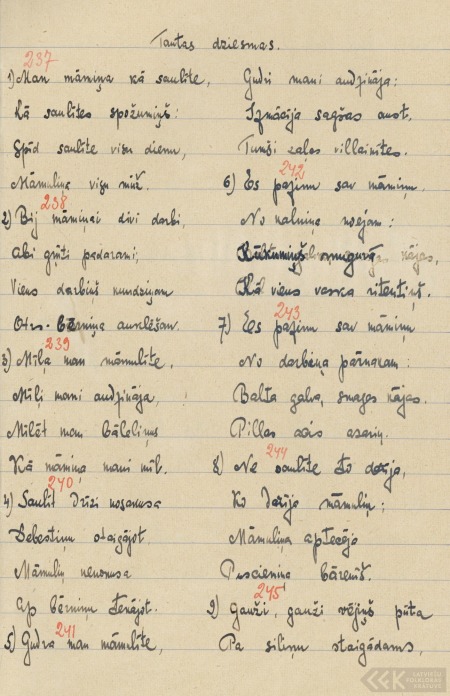 Tautas dziesmas.
237
1) Man māmiņa kā saulīte,
Kā saulītes spožumiņš:
Spīd saulīte visu dienu,
Māmuliņa visu mūž.
238
2) Bij māmiņai divi darbi,
Abi grūti padarami;
Viens darbiņš kundziņam
Otrs bērniņa auklēšan.
239
3) Mīļa man māmulīte,
Mīļi mani audzināja,
Mīlēt man bāleliņus
Kā māmiņa mani mīl.
240
4) Saulīt drīzi nosarkusa
Debestiņu staigājot
Māmuliņ nokususa
Ap bērniņu tenājot.
241
5) Gudra man māmulīte,
Gudri mani audzināja:
Izmācīja sagšas aust,
Tumši zaļas villainītes.
242
6) Es pazinu sav māmiņ,
No kalniņa noejam:
Kūkumiņš mugurā, kājas,
Kā viens vaska ritentiņš.
243
7) Es pazinu sav māmiņu
No darbiņa pārnākam:
Balta galva, smagas kājas.
Pillas acis asariņ.
244
8) Ne saulīte to darīja,
Ko darīja māmuliņ:
Māmuliņa aptecēja
Pusdieniņā bāreniņ.
245
9) Gauži, gauži vējiņš pūta
Pa siliņu staigādams,
LATVIEŠU FOLKLORAS KRĀTUVE